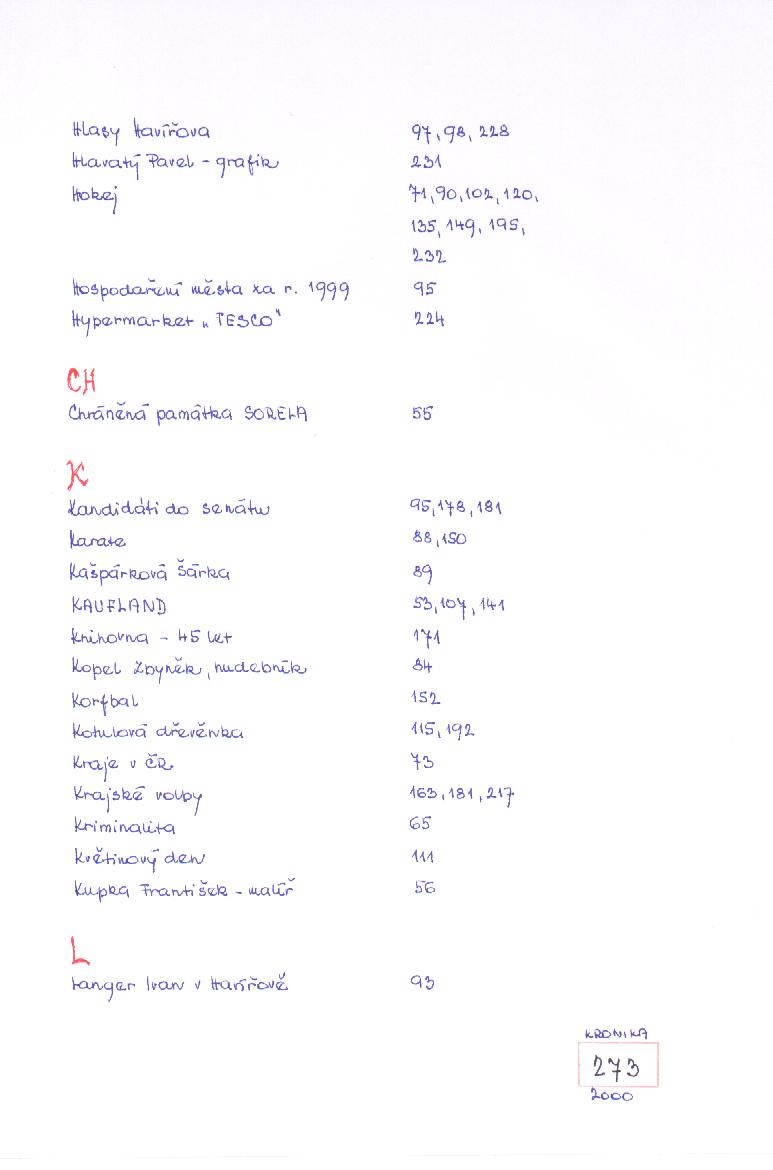 Hlasy Havířova 97, 98, 228
Hlavatý Pavel - grafik 231
Hokej 71, 90, 102, 120,
135, 149, 195,
232
Hospodaření města za r. 1999 95
Hypermarket „TESCO“ 224
CH
Chráněná památka SORELA 55
K
Kandidáti do senátu 95, 178, 181
Karate 88, 150
Kašpárková Šárka 89
KAUFLAND 53, 107, 141
Knihovna - 45 let 171
Kopel Zbyněk, hudebník 84
Korfbal 152
Kotulová dřevěnka 115, 192
Kraje v ČR 73
Krajské volby 163, 181, 217
Kriminalita 65
Květinový den 111
Kupka František - malíř 56
L
Langer Ivan v Havířově 93
KRONIKA
273
2000